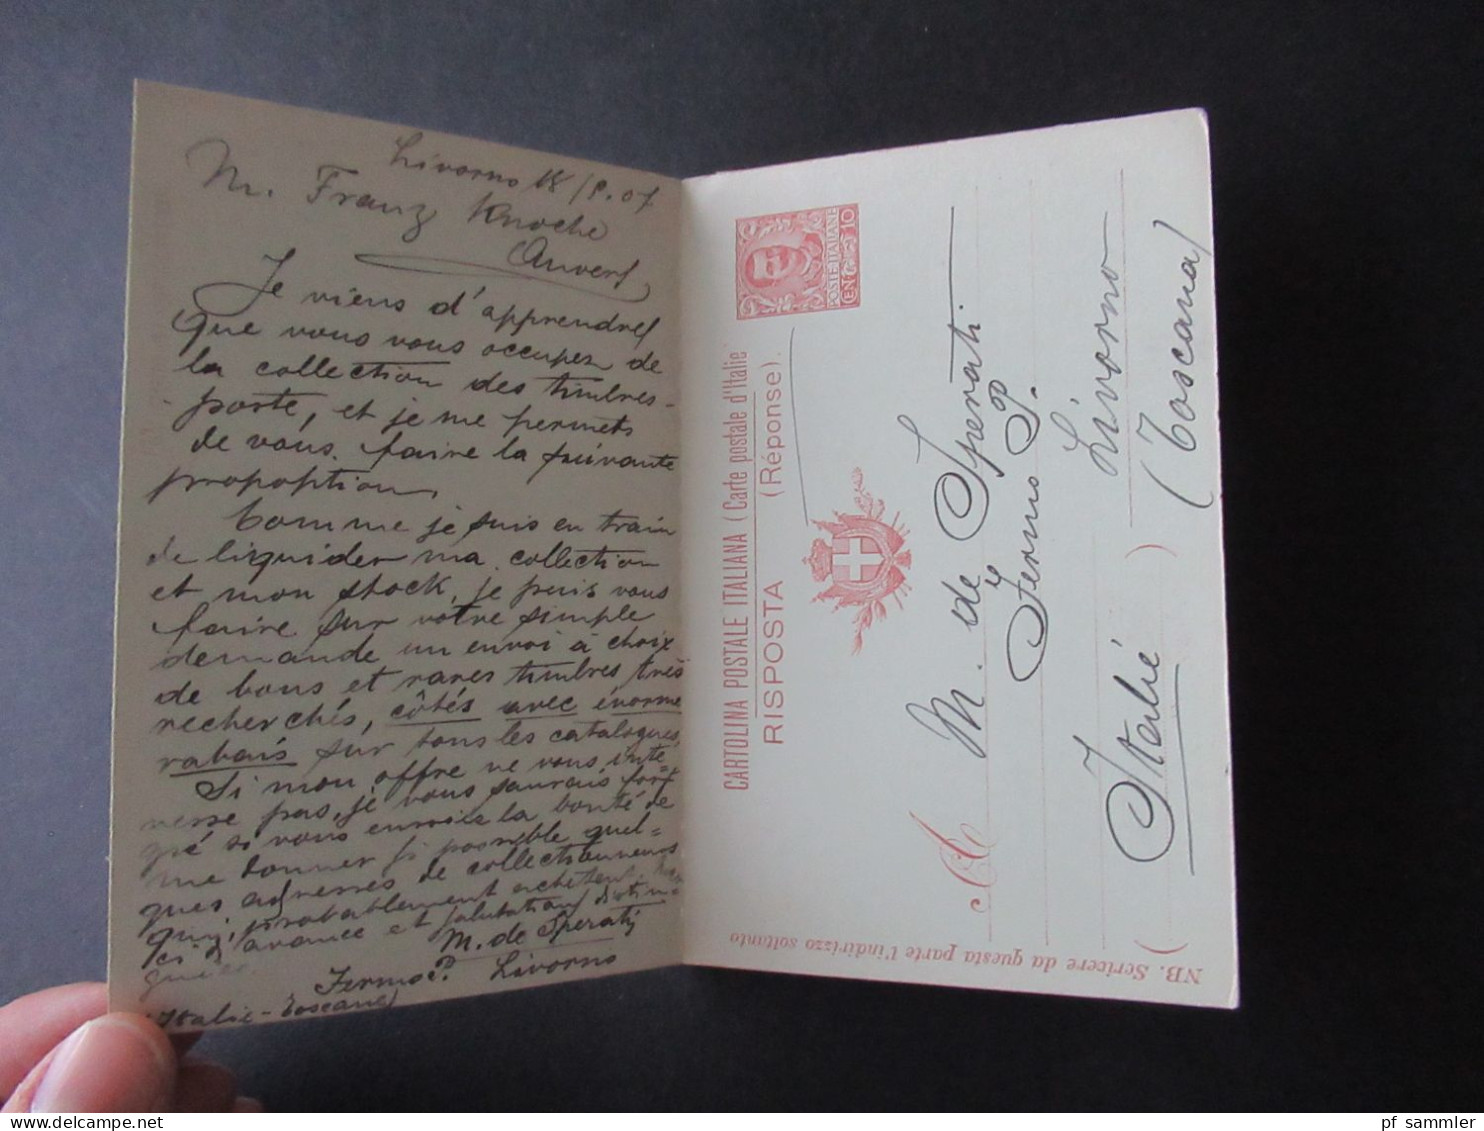 Livorno 18/9.07
M. Franz Knoche
Anvers
Je viens d'apprendre
que vous vous occupez de
la collection des timbres-
poste, et je me permets
de vous faire la suivante
proposition.
Comme je suis en train
de liquider ma collection
et mon stock, je puis vous
faire sur votre simple
demande un envoi à choix
de bons et rares timbres très
recherchés, côtés avec énorme
rabais sur tous les catalogues,
Si mon offre ne vous inte=
resse pas, je vous saurais fort
gré si vous auriez la bonté de
me donner si possible quel=
ques adresses de collectionneurs
qui, probablement achètent.
d'avance et salutations
M. de Sperati
Fermo P. Livorno
Italie-Toscane)
POSTE ITALIANE
(EN 10
CARTOLINA POSTALE ITALIANA (Carte postale d'Italie)
RISPOSTA (Réponse).
A M. de Sperati
Fermo P.
Livorno
(Toscana)
Italie
NB. Scrivere da questa parte l'indirizzo soltanto
pf_sammler